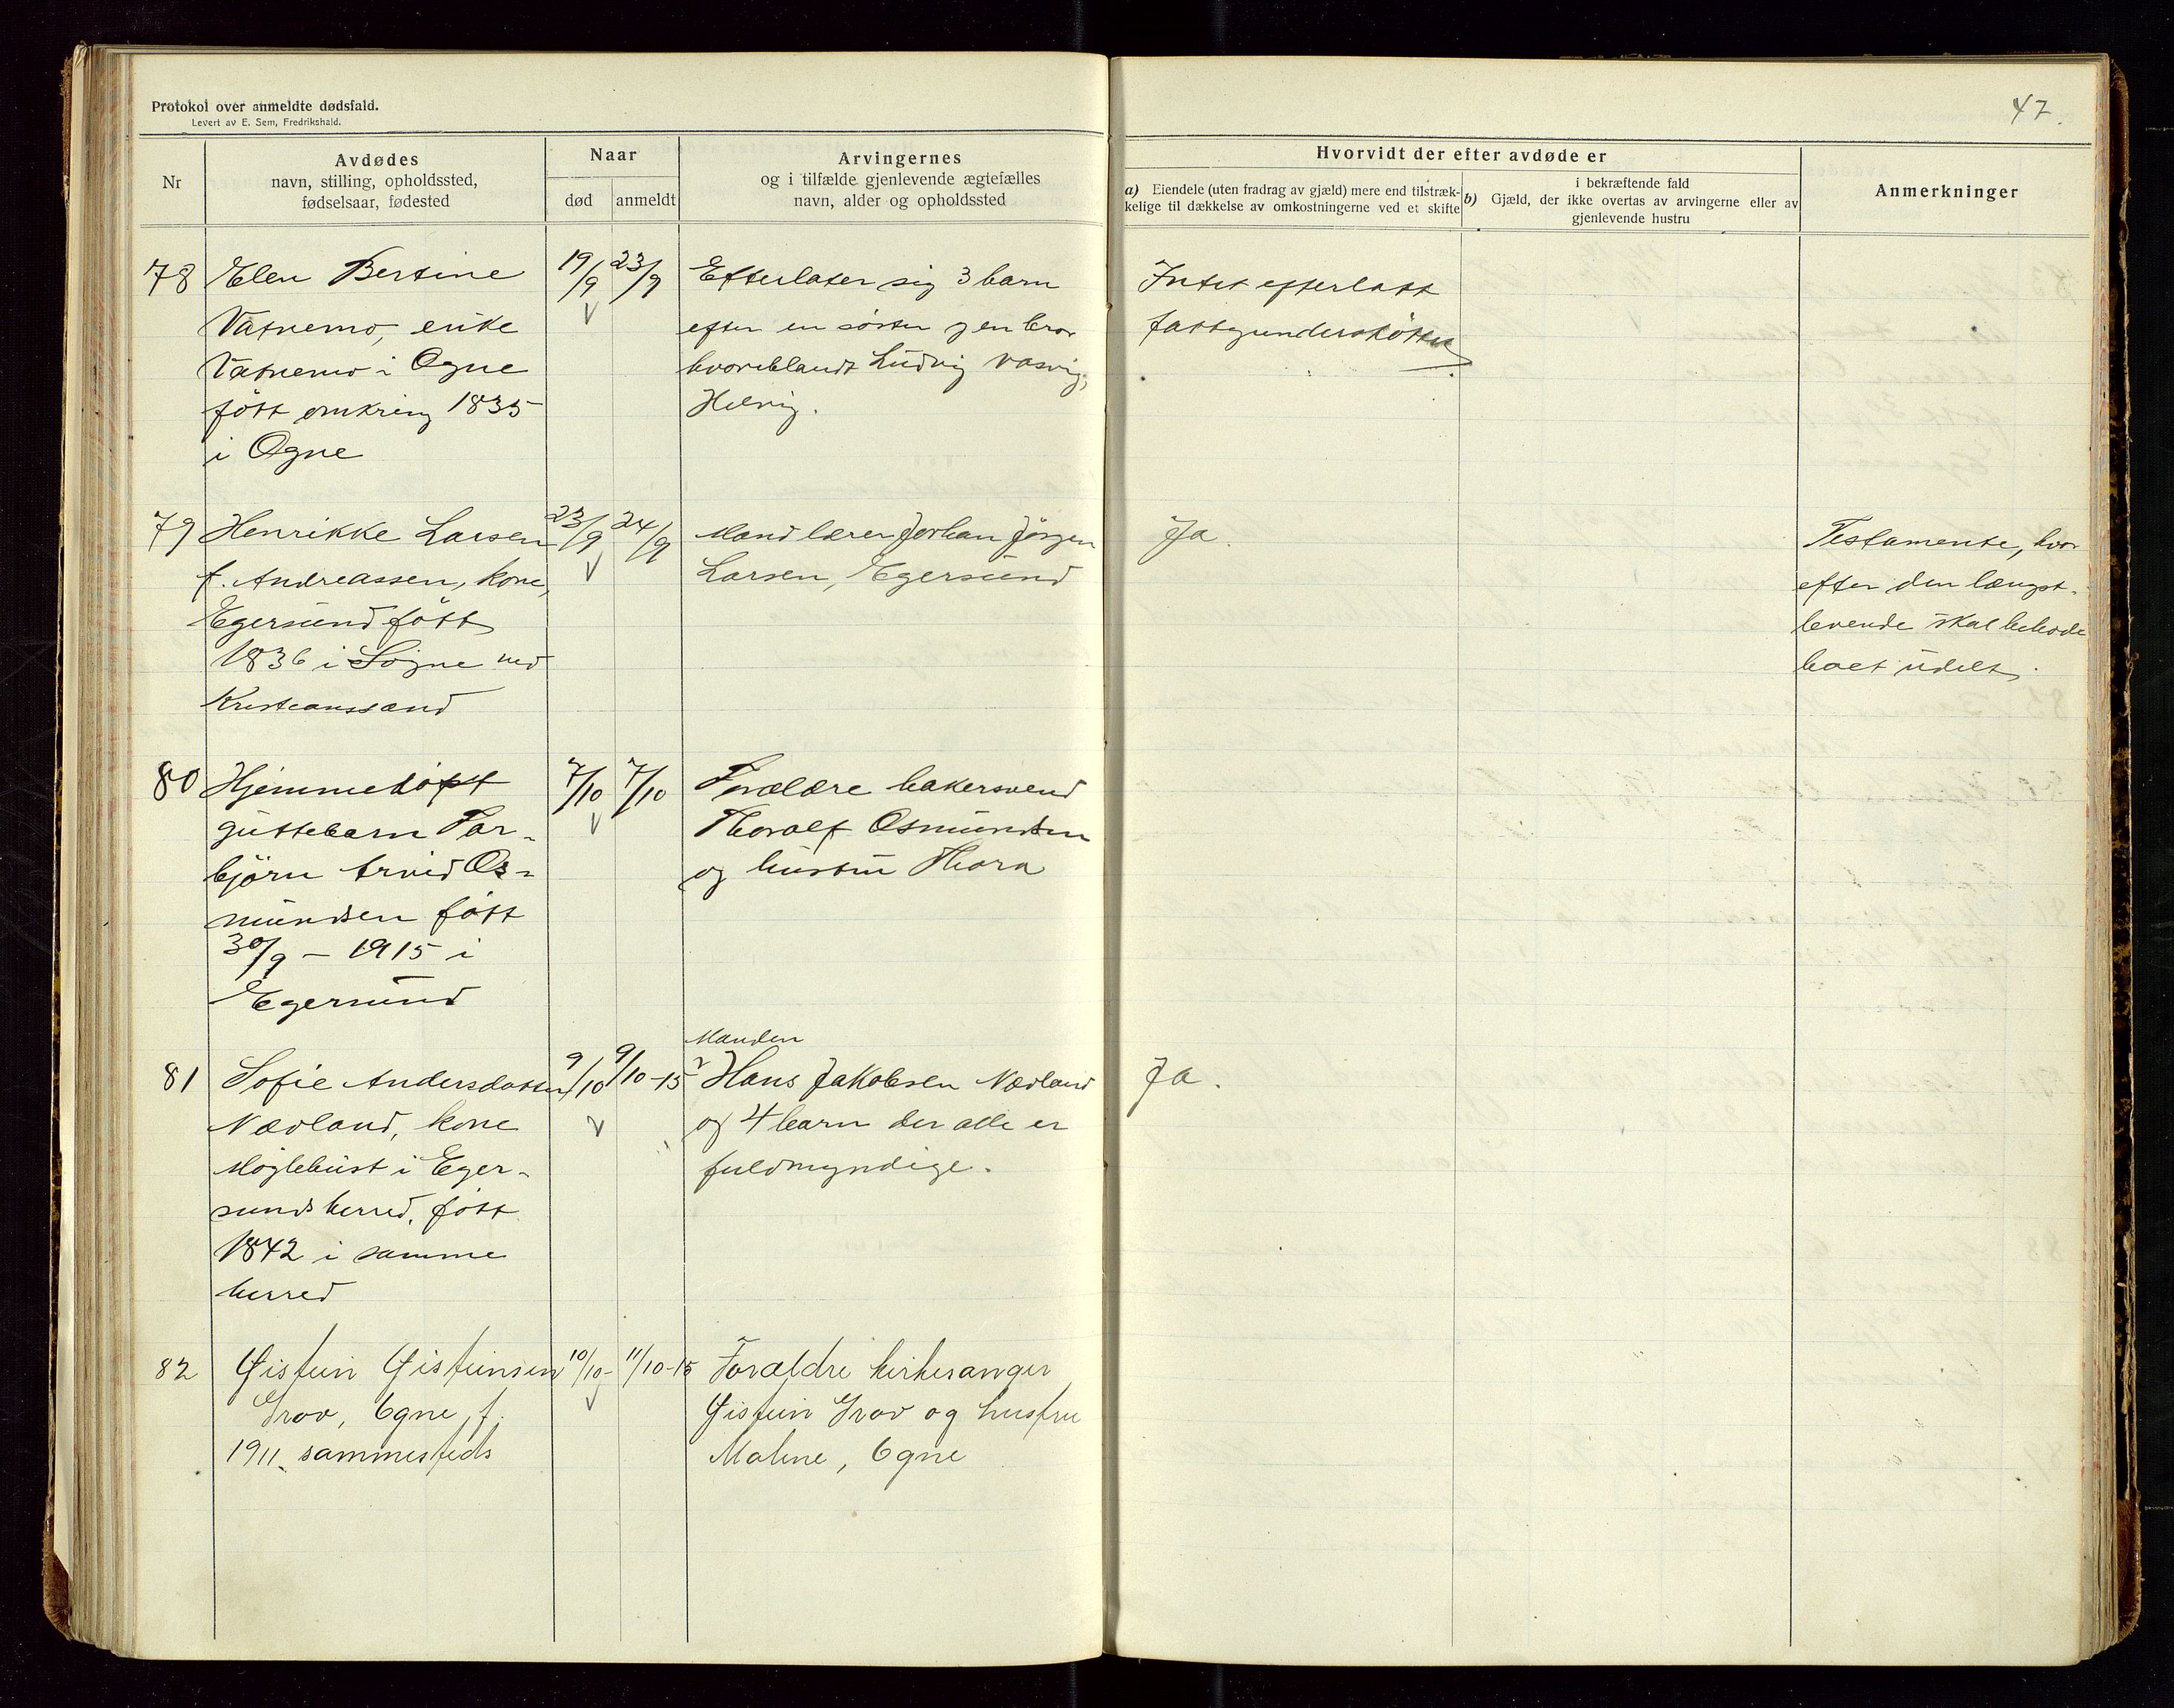 Protokol over anmeldte dødsfald.
Levert av E. Sem, Fredrikshald.
47.
Nr
Avdødes
navn, stilling, opholdssted,
fødselsaar, fødested
Naar
død
anmeldt
Arvingernes
og i tilfælde gjenlevende ægtefælles
navn, alder og opholdssted
Hvorvidt der efter avdøde er
a) Eiendele (uten fradrag av gjæld) mere end tilstræk-
kelige til dækkelse av omkostningerne ved et skifte
i bekræftende fald
b) Gjæld, der ikke overtas av arvingerne eller av
gjenlevende hustru
Anmerkninger
78
Elen Bertine
Vatnemo, enke
Vatnemo i Ogne
født omkring 1835
i Ogne
19/9
23/9
Efterlater sig 3 barn
efter en søster og en bror
hvoriblandt Ludvig
Helvig.
Intet efterlatt
fattigunderstøttet
79
Henrikke Larsen
f. Andreassen, kone,
Egersund født
1836 i Søgne ved
Kristianssand
23/9
24/9
Mand lærer Johan Jørgen
Larsen, Egersund
Ja.
Testamente, hvor
efter den længst-
levende skal beholde
boet udelt.
80
Hjemmedøpt
guttebarn Tor-
bjørn Arvid Os-
mundsen født
30/9 - 1915 i
Egersund
7/10
7/10
Forældre bakersvend
Thoralf Osmundsen
og hustru Thora
81
Sofie Andersdatter
Nævland, kone
Møglebust i Eger-
sunds herred, født
1842 i samme
herred
9/10
9/10-15
Manden
Hans Jakobsen Nævland
og 4 barn der alle er
fuldmyndige.
Ja.
82
Øistein Øisteinsen
Grov, Ogne, f.
1911 sammesteds
10/10-
11/10-15
Forældre kirkesanger
Øistein Grov og hustru
Malene, Ogne